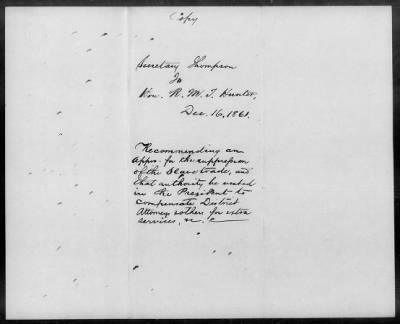 Copy
Secretary Thompson
To
Hon. R. M. T. Hunter,
Dec. 16, 1861.
Recommending an
Appro. for the suppression
of the Slave trade, and
that authority be vested
in the President to
compensate District
Attorneys & others for extra
services, &c.